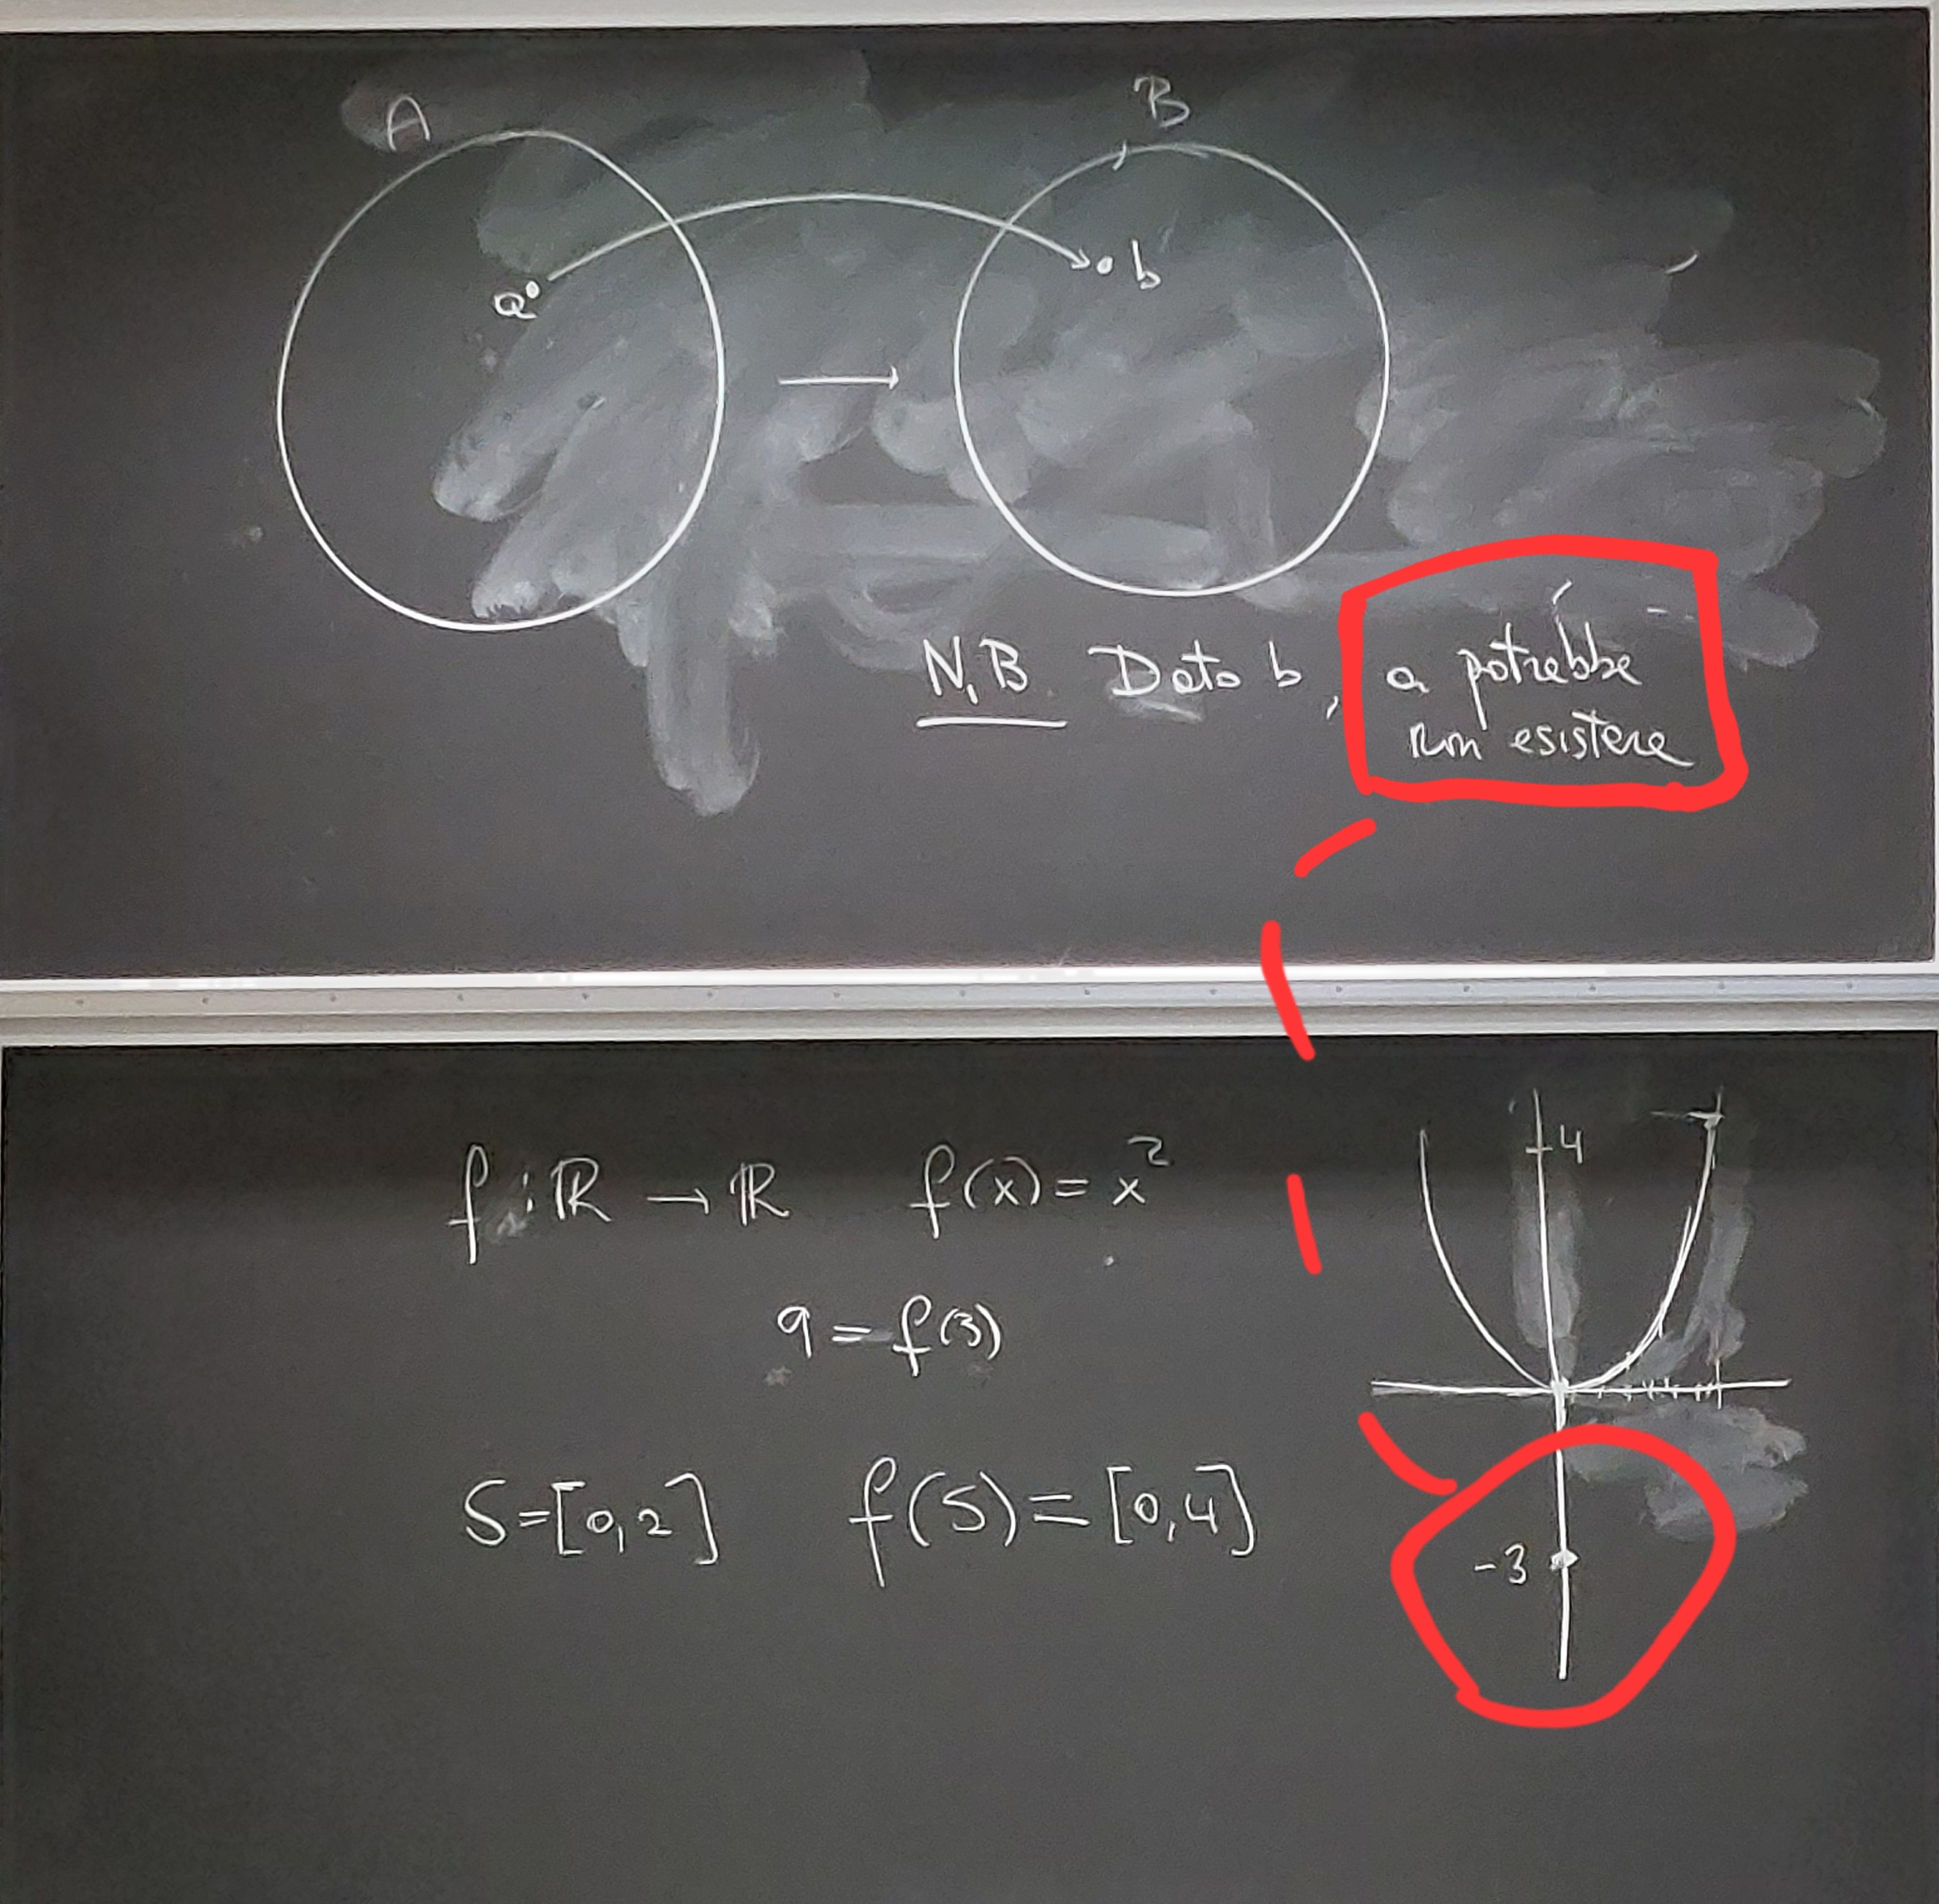 A B
a b
N.B. Dato b, a potrebbe
non esistere
f: ℝ → ℝ f(x) = x²
4
9 = f(3)
S = [0,2] f(S) = [0,4]
-3